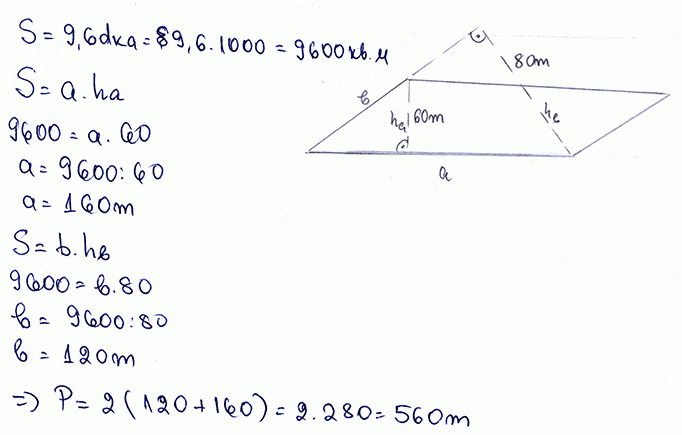 S = 9,6dka = 9,6.1000 = 9600кв.м
S = a.ha
9600 = a.60
a = 9600:60
a = 160m
S = b.hb
9600 = b.80
b = 9600:80
b = 120m
=> P = 2(120+160) = 2.280 = 560m
80m
b
ha 60m
hb
a